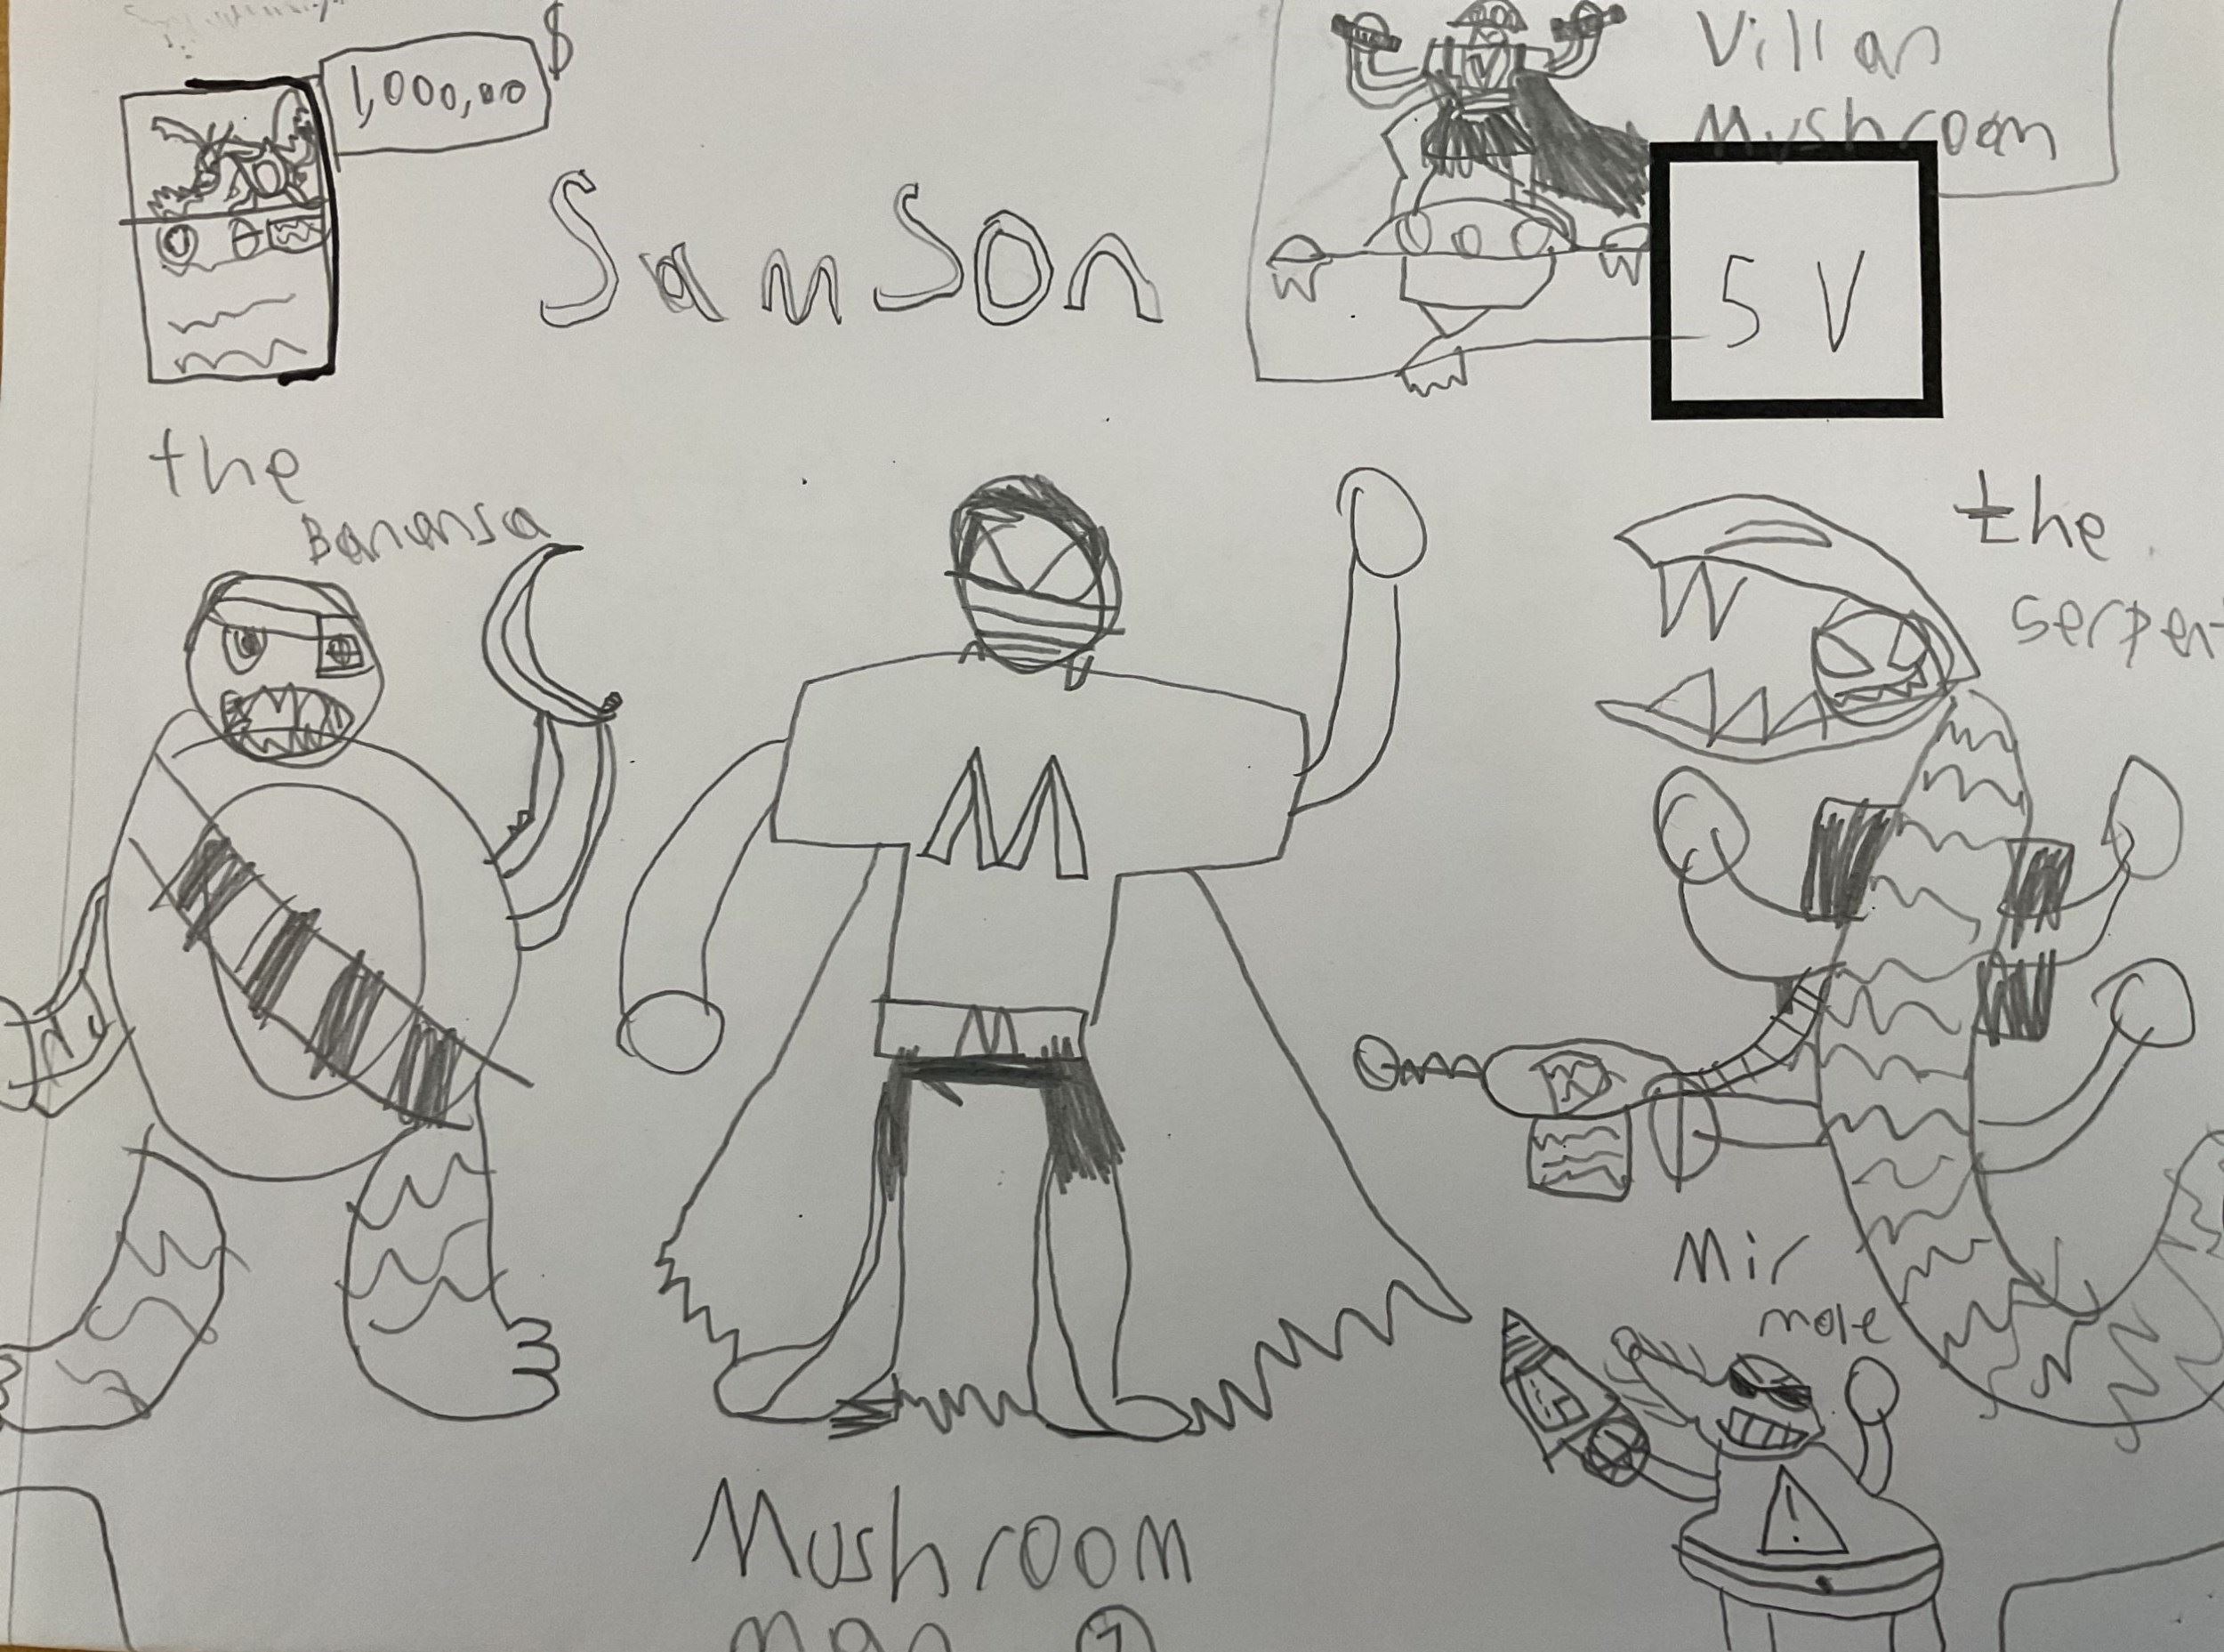 1,000,00 $
Samson
Villan
Mushroom
5 V
the
Banansa
the
serpent
M
M
Mir
mole
!
Mushroom
man 7